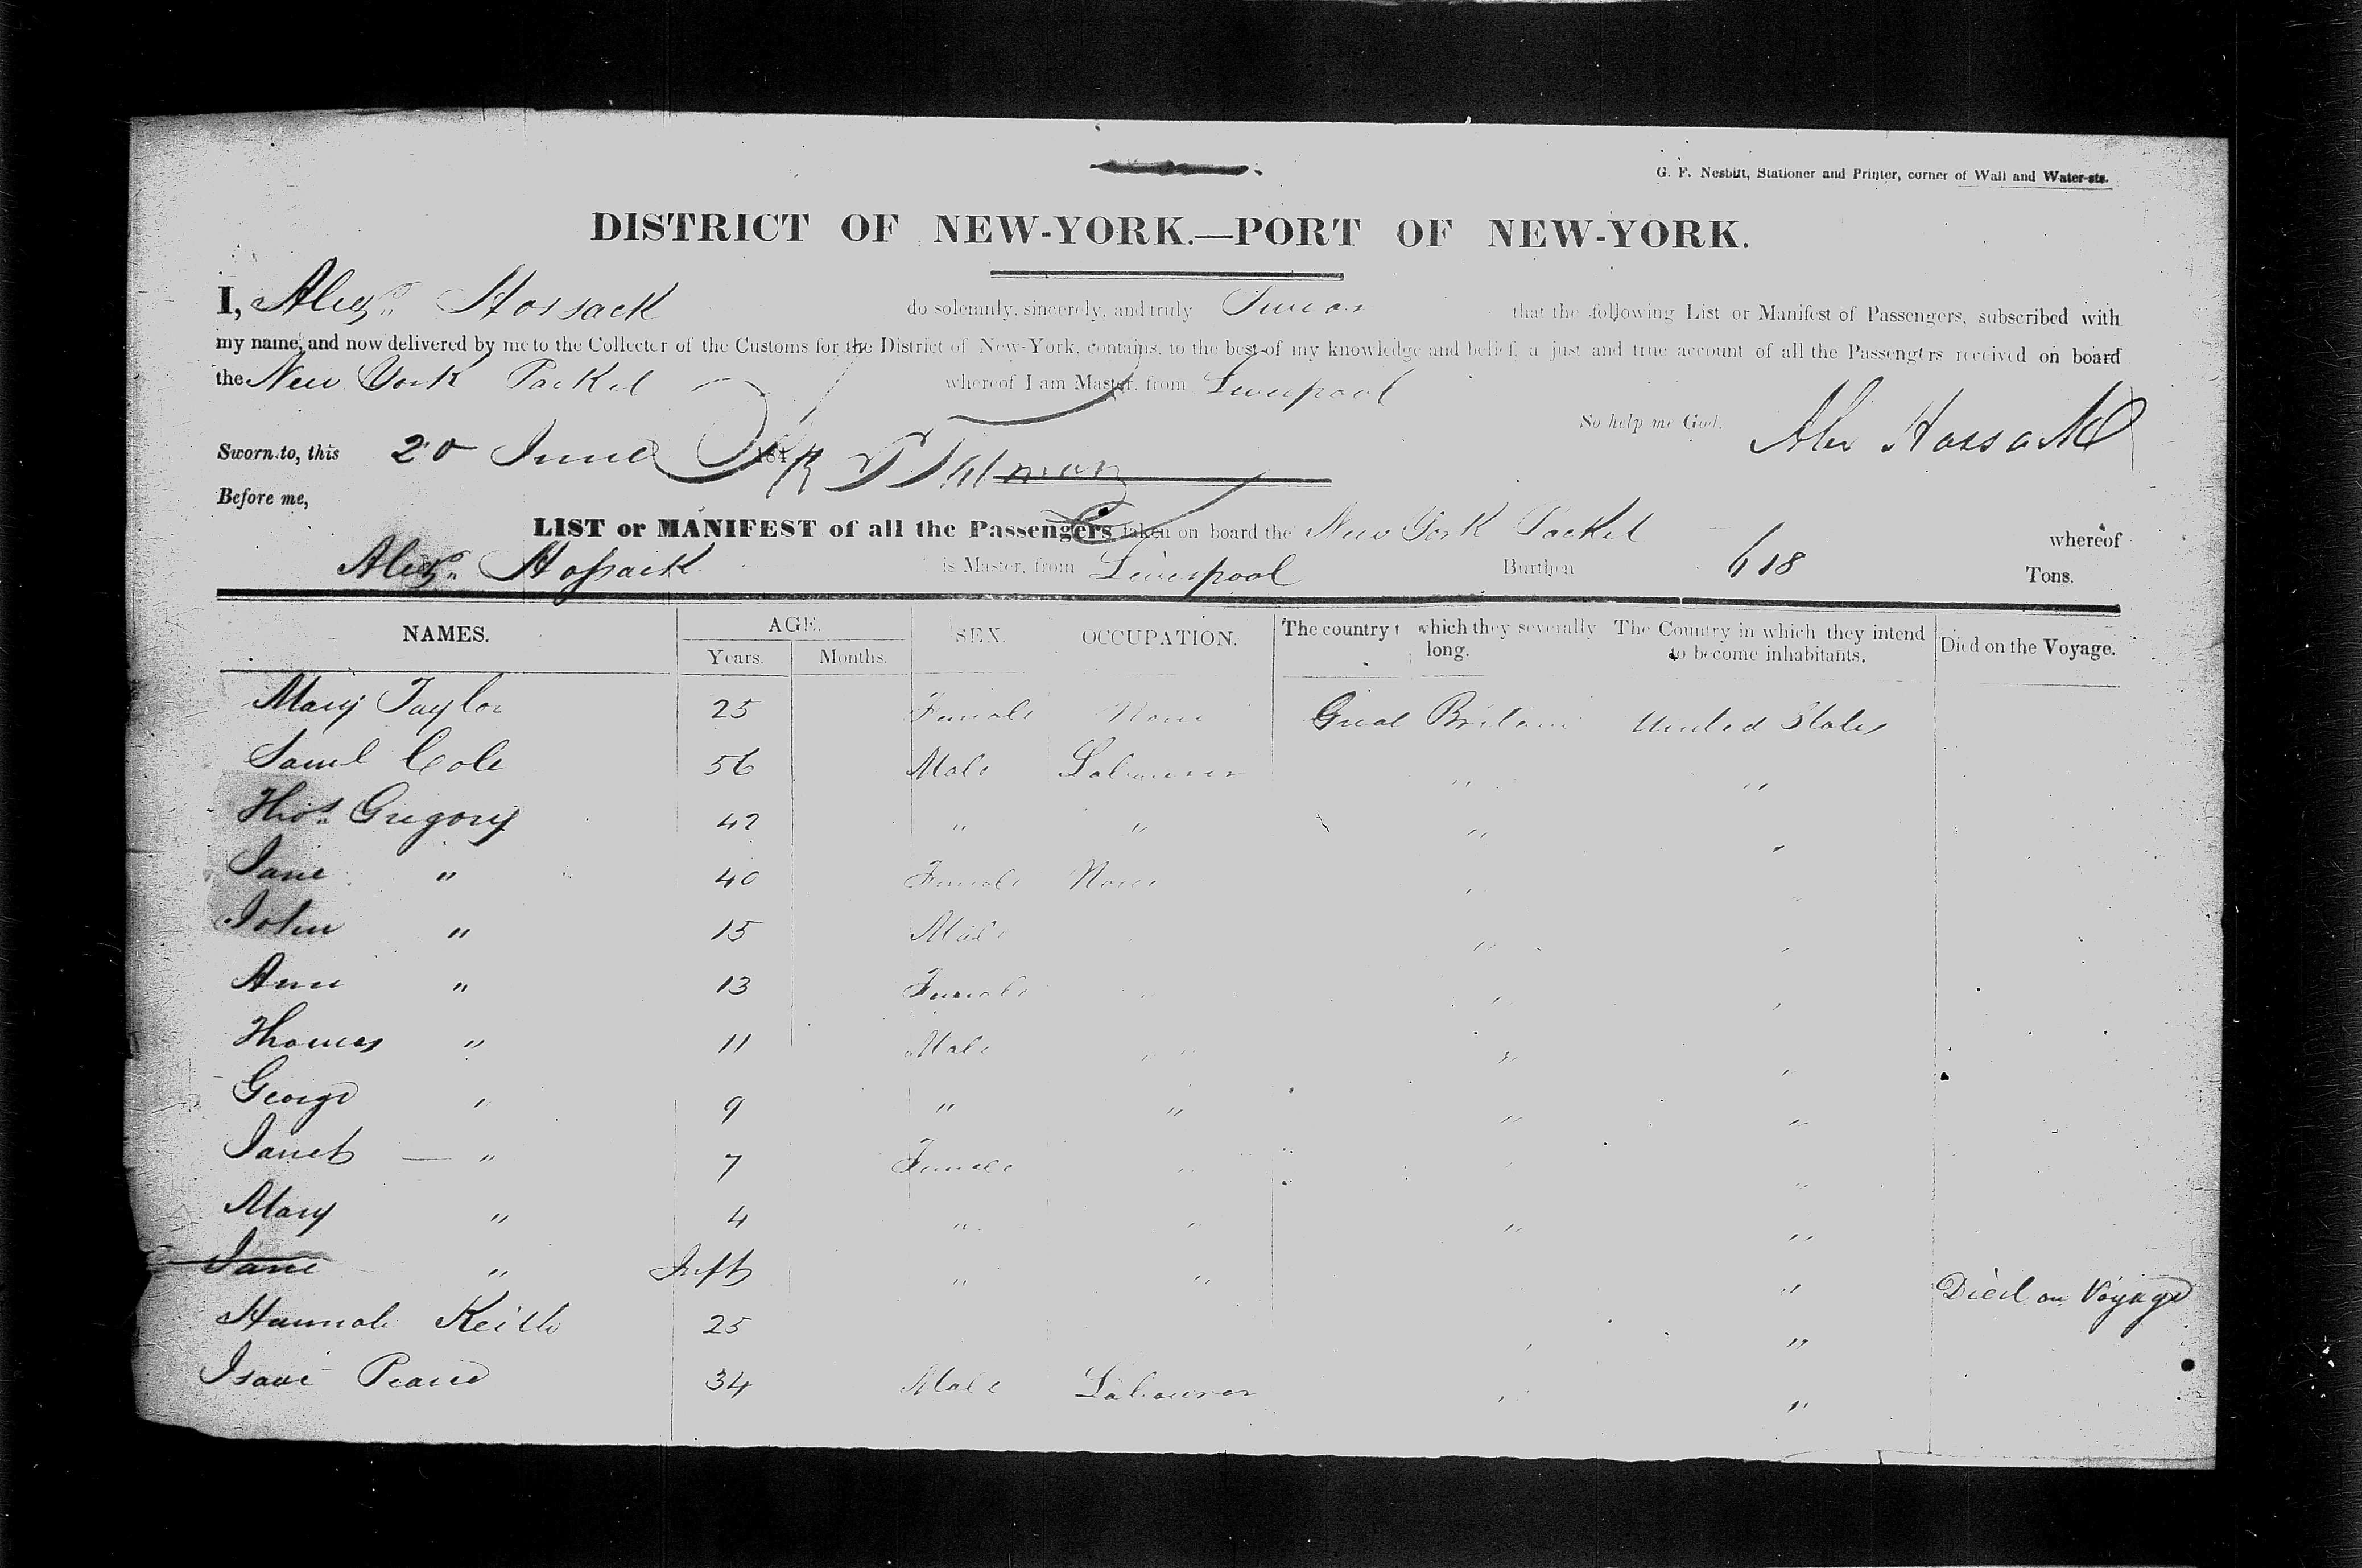 G. F. Nesbitt, Stationer and Printer, corner of Wall and Water-sts.
DISTRICT OF NEW-YORK.—PORT OF NEW-YORK.
I, Alexr. Hossack do solemnly, sincerely, and truly Swear that the following List or Manifest of Passengers, subscribed with
my name, and now delivered by me to the Collecter of the Customs for the District of New-York, contains, to the best of my knowledge and belief, a just and true account of all the Passengers received on board
the New York Packet whereof I am Master, from Liverpool
So help me God. Alex Hossack
Sworn to, this 20 June 184
Before me,
LIST or MANIFEST of all the Passengers taken on board the New York Packet whereof
Alexr. Hossack is Master, from Liverpool Burthen 618 Tons.
NAMES. AGE. SEX. OCCUPATION. The country t which they severally long. The Country in which they intend to become inhabitants. Died on the Voyage.
Years. Months.
Mary Taylor 25 Female None Great Britain United States
Saml Cole 56 Male Labourer " "
Thos. Gregory 42 " " " "
Jane " 40 Female None " "
John " 15 Male " "
Ann " 13 Female " " "
Thomas " 11 Male " " " "
George " 9 " " " "
Janet — " 7 Female " "
Mary " 4 " " " "
Jane " Inft " " " Died on Voyage
Hannah Keith 25 " "
Isaac Pearce 34 Male Labourer " "